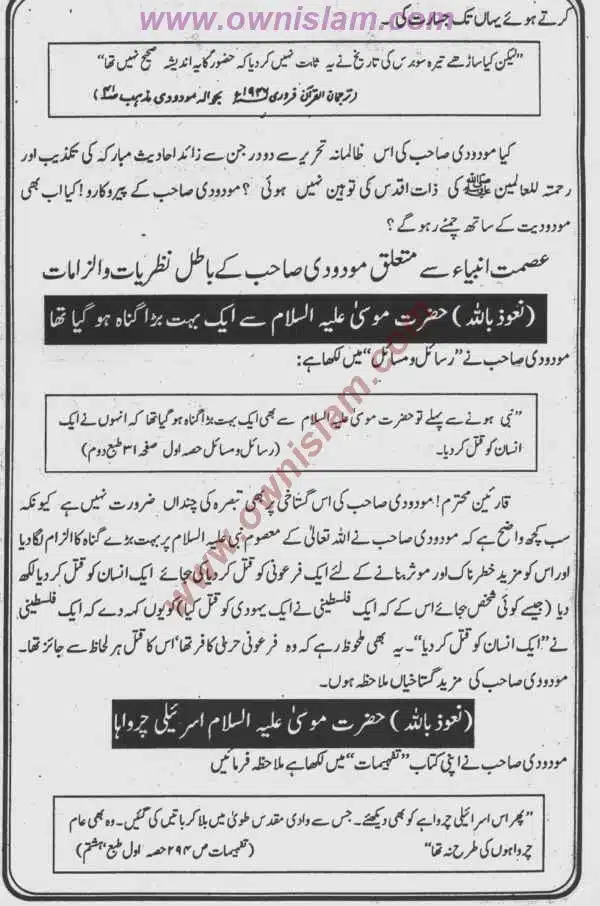 www.ownislam.com
کرتے ہوئے یہاں تک جسارت کی ۔
”لیکن کیا ساڑھے تیرہ سو برس کی تاریخ نے یہ ثابت نہیں کر دیا کہ حضور کا یہ اندیشہ صحیح نہیں تھا“
(ترجمان القرآن فروری ۱۹۴۶ء بحوالہ مودودی مذہب ص۴۱)
کیا مودودی صاحب کی اس ظالمانہ تحریر سے دو درجن سے زائد احادیث مبارکہ کی تکذیب اور
رحمتہ للعالمین ﷺ کی ذات اقدس کی توہین نہیں ہوئی ؟ مودودی صاحب کے پیروکارو! کیا اب بھی
مودودیت کے ساتھ چمٹے رہو گے ؟
عصمت انبیاء سے متعلق مودودی صاحب کے باطل نظریات و الزامات
(نعوذ باللہ) حضرت موسیٰ علیہ السلام سے ایک بہت بڑا گناہ ہو گیا تھا
مودودی صاحب نے ”رسائل و مسائل“ میں لکھا ہے:
”نبی ہونے سے پہلے تو حضرت موسیٰ علیہ السلام سے بھی ایک بہت بڑا گناہ ہو گیا تھا کہ انہوں نے ایک
انسان کو قتل کر دیا۔ (رسائل و مسائل حصہ اول صفحہ ۳۱ طبع دوم)
قارئین محترم! مودودی صاحب کی اس گستاخی پر بھی تبصرہ کی چنداں ضرورت نہیں ہے کیونکہ
سب کچھ واضح ہے کہ مودودی صاحب نے اللہ تعالیٰ کے معصوم نبی علیہ السلام پر بہت بڑے گناہ کا الزام لگا دیا
اور اس کو مزید خطرناک اور موثر بنانے کے لئے ایک فرعونی کو قتل کر دیا کی بجائے ایک انسان کو قتل کر دیا لکھ
دیا (جیسے کوئی شخص بجائے اس کے کہ ایک فلسطینی نے ایک یہودی کو قتل کیا) کو یوں کہہ دے کہ ایک فلسطینی
نے ”ایک انسان کو قتل کر دیا“۔ یہ بھی ملحوظ رہے کہ وہ فرعونی حربی کافر تھا‘ اس کا قتل ہر لحاظ سے جائز تھا۔
مودودی صاحب کی مزید گستاخیاں ملاحظہ ہوں۔
(نعوذ باللہ) حضرت موسیٰ علیہ السلام اسرائیلی چرواہا
مودودی صاحب نے اپنی کتاب ”تفہیمات“ میں لکھا ہے ملاحظہ فرمائیں
”پھر اس اسرائیلی چرواہے کو بھی دیکھئے۔ جس سے وادی مقدس طویٰ میں بلا کر باتیں کی گئیں۔ وہ بھی عام
چرواہوں کی طرح نہ تھا“ (تفہیمات ص ۲۹۴ حصہ اول طبع ہشتم)
www.ownislam.com